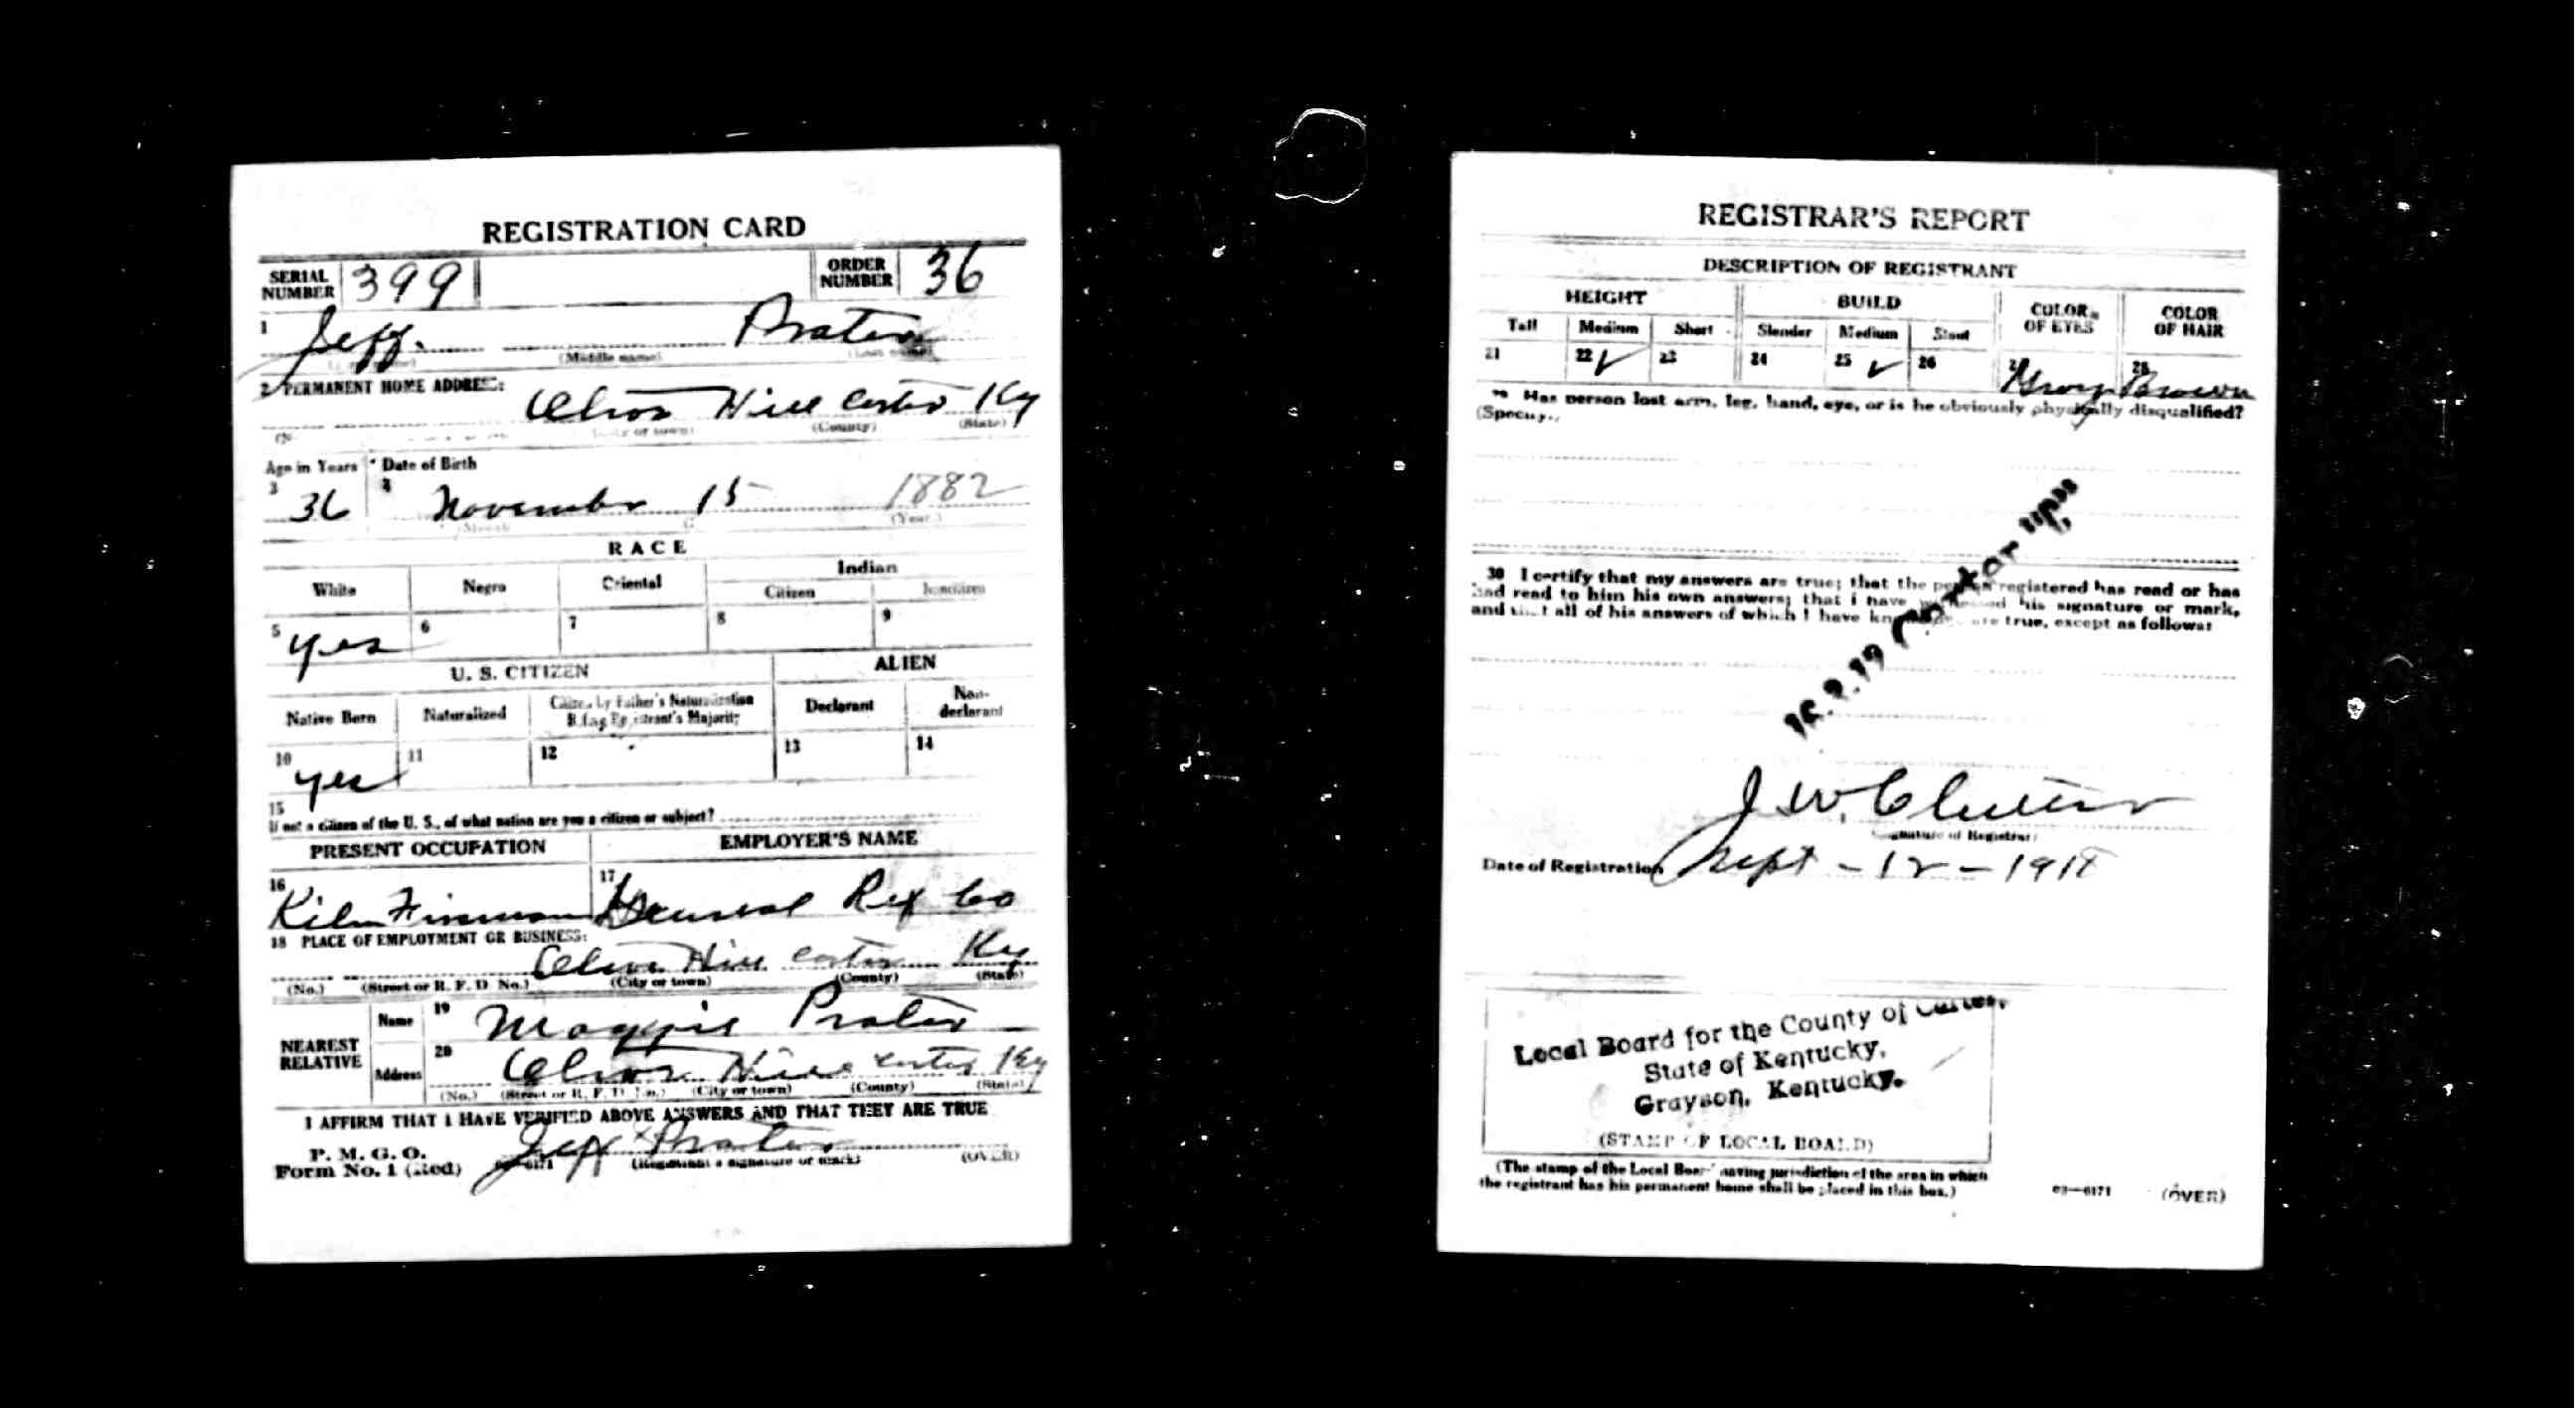 REGISTRATION CARD
SERIAL NUMBER 399 ORDER NUMBER 36
1 Jeff Prater
(Middle name)
2 PERMANENT HOME ADDRESS:
Olive Hill Carter Ky
(County) (State)
Age in Years Date of Birth
3 36 4 November 15 1882
(Year)
RACE
White Negro Oriental Indian
Citizen Noncitizen
5 yes 6 7 8 9
U. S. CITIZEN ALIEN
Native Born Naturalized Citizen by Father's Naturalization Before Registrant's Majority Declarant Non-declarant
10 yes 11 12 13 14
15
If not a citizen of the U. S., of what nation are you a citizen or subject?
PRESENT OCCUPATION EMPLOYER'S NAME
16 Kiln Fireman 17 General Ref Co
18 PLACE OF EMPLOYMENT OR BUSINESS:
Olive Hill Carter Ky
(No.) (Street or R. F. D. No.) (City or town) (County) (State)
NEAREST RELATIVE
Name 19 Maggie Prater
Address 20 Olive Hill Carter Ky
(No.) (Street or R. F. D. No.) (City or town) (County) (State)
I AFFIRM THAT I HAVE VERIFIED ABOVE ANSWERS AND THAT THEY ARE TRUE
P. M. G. O.
Form No. 1 (Red) Jeff Prater
(Registrant's signature or mark) (OVER)
REGISTRAR'S REPORT
DESCRIPTION OF REGISTRANT
HEIGHT BUILD COLOR OF EYES COLOR OF HAIR
Tall Medium Short Slender Medium Stout
21 22 ✓ 23 24 25 ✓ 26 Brown
29 Has person lost arm, leg, hand, eye, or is he obviously physically disqualified?
(Specify.)
30 I certify that my answers are true; that the person registered has read or has
had read to him his own answers; that I have witnessed his signature or mark,
and that all of his answers of which I have knowledge are true, except as follows:
J. W.
(Signature of Registrar)
Date of Registration Sept - 12 - 1918
Local Board for the County of Carter,
State of Kentucky,
Grayson, Kentucky.
(STAMP OF LOCAL BOARD)
(The stamp of the Local Board having jurisdiction of the area in which
the registrant has his permanent home shall be placed in this box.)
03—6171 (OVER)